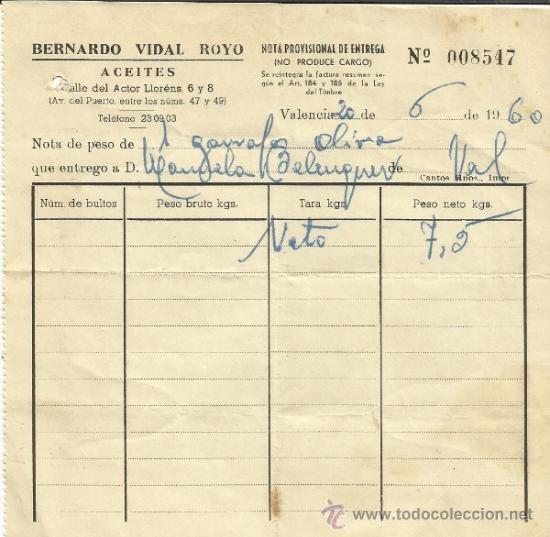 BERNARDO VIDAL ROYO
ACEITES
Calle del Actor Lloréns. 6 y 8
(Av. del Puerto, entre los núms. 47 y 49)
Teléfono 23.09.03
NOTA PROVISIONAL DE ENTREGA
(NO PRODUCE CARGO)
Se reintegra la factura resumen se-
gún el Art. 184 y 185 de la Ley
del Timbre
Nº 008547
Valencia 20 de 6 de 1960
Nota de peso de 1 garrafa oliva
que entrego a D. Manuela Belenguer de Val
Cantos Hnos., Impr
Núm. de bultos Peso bruto kgs. Tara kgs. Peso neto kgs.
Neto 7,5
www.todocoleccion.net